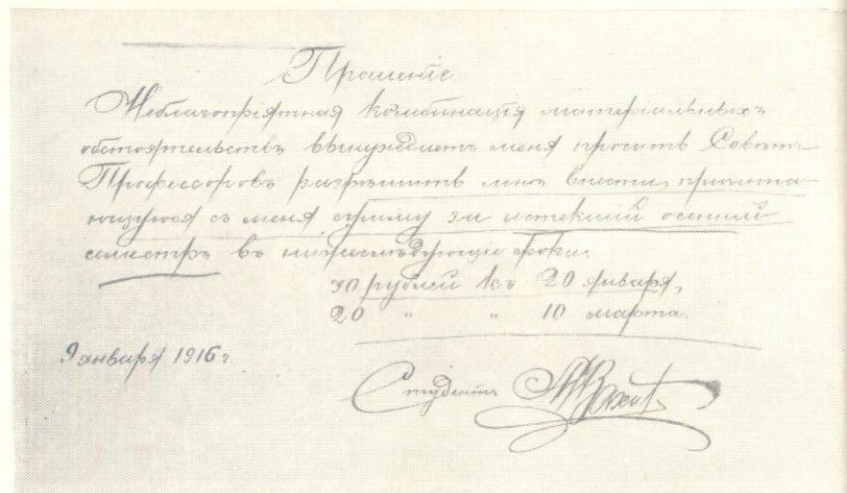 Прошеніе.
Неблагопріятная комбинація матеріальныхъ
обстоятельствъ вынуждаетъ меня просить Совѣтъ
Профессоровъ разрѣшить мнѣ внести причита-
ющуюся съ меня сумму за истекшій осенній
семестръ въ нижеслѣдующіе сроки:
30 рублей къ 20 января,
20 " " 10 марта.
9 января 1916 г.
Студентъ